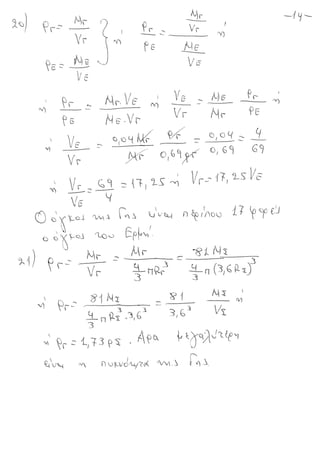 -14-
20) ρΓ = MΓ/VΓ
ρE = ME/VE } ή ρΓ/ρE = (MΓ/VΓ)/(ME/VE) ή
ή ρΓ/ρE = MΓ·VE/ME·VΓ ή VE/VΓ = ME/MΓ ρΓ/ρE ή
ή VE/VΓ = 0,04MΓ/MΓ ρΓ/0,69ρΓ = 0,04/0,69 = 4/69
ή VΓ/VE = 69/4 = 17,25 ή VΓ=17,25VE
Ο όγκος της Γης είναι περίπου 17 φορές
ο όγκος του Ερμή.
21) ρΓ = MΓ/VΓ = MΓ/(4/3 πRΓ³) = 81MΣ/(4/3 π(3,6RΣ)³)
ή ρΓ = 81MΣ/(4/3 πRΣ³·3,6³) = 81/3,6³ MΣ/VΣ ή
ή ρΓ = 1,73ρΣ. Άρα μεγαλύτερη
είναι η πυκνότητα της Γης